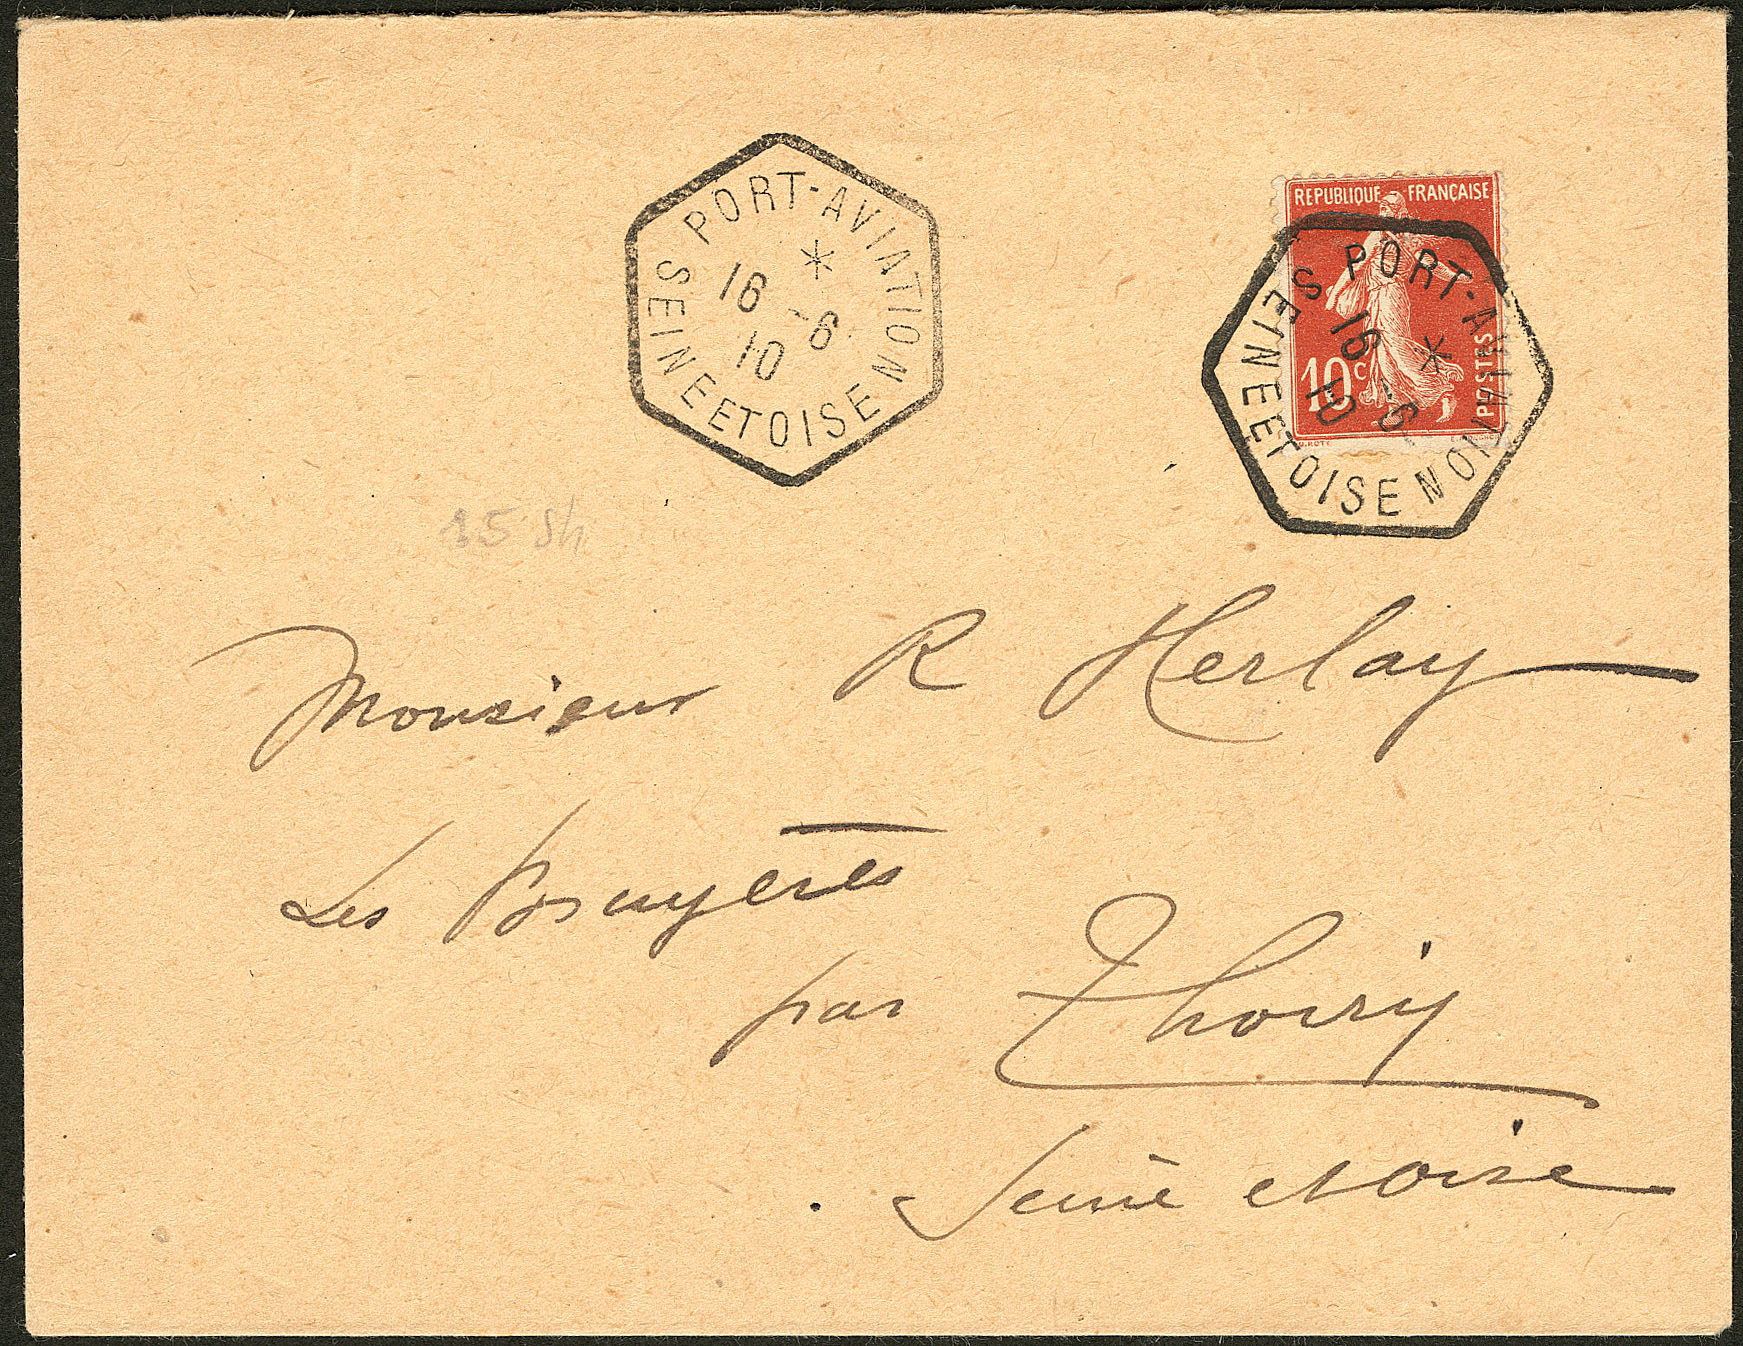 PORT-AVIATION
*
16 -6
10
SEINE ET OISE
REPUBLIQUE FRANÇAISE
10c
POSTES
PORT-AVIATION
*
16 -6
10
SEINE ET OISE
Monsieur R Herlay
Les Bruyères
par Thoiry
Seine et Oise